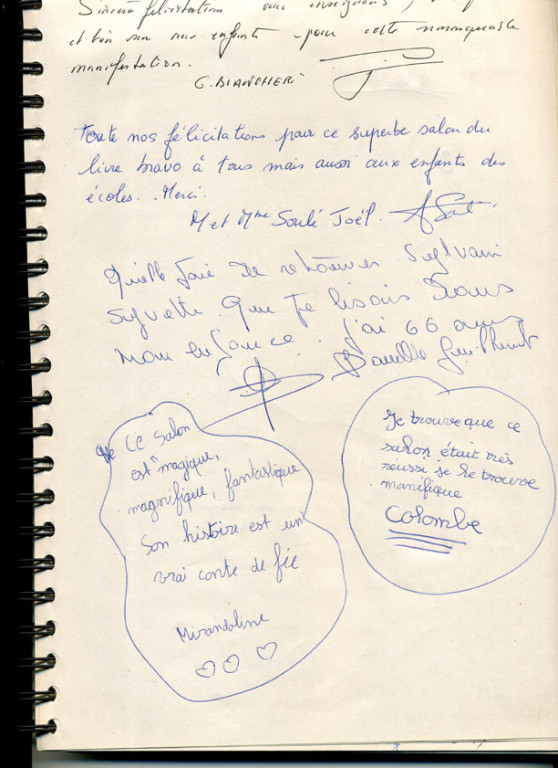 Sincère félicitation aux enseignants,
et bien sur aux enfants - pour cette remarquable
manifestation.
G. BIANCHERI
Toute nos félicitations pour ce superbe salon du
livre bravo à tous mais aussi aux enfants des
écoles. Merci.
M et Mme Soulé Joël.
Quelle joie de retrouver Sylvain
Sylvette que je lisais dans
mon enfance. j'ai 66 ans
Danielle
Ce Salon
est magique,
magnifique, fantastique
Son histoire est un
vrai conte de fée
Mirandoline
Je trouve que ce
salon était très
réussi je le trouve
manifique
Colombe